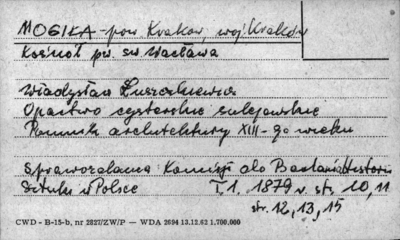 MOGIŁA - pow Kraków, woj. Kraków
Kościół pw. św Wacława
Władysław Łuszczkiewicz
Opactwo cysterskie sulejowskie
Pomnik architektury XIII-go wieku
Sprawozdania Komisji do Badania Historii
Sztuki w Polsce T. 1. 1879 r. str. 10, 11
str. 12, 13, 15
CWD - B-15-b, nr 2827/ZW/P — WDA 2694 13.12.62 1.700.000